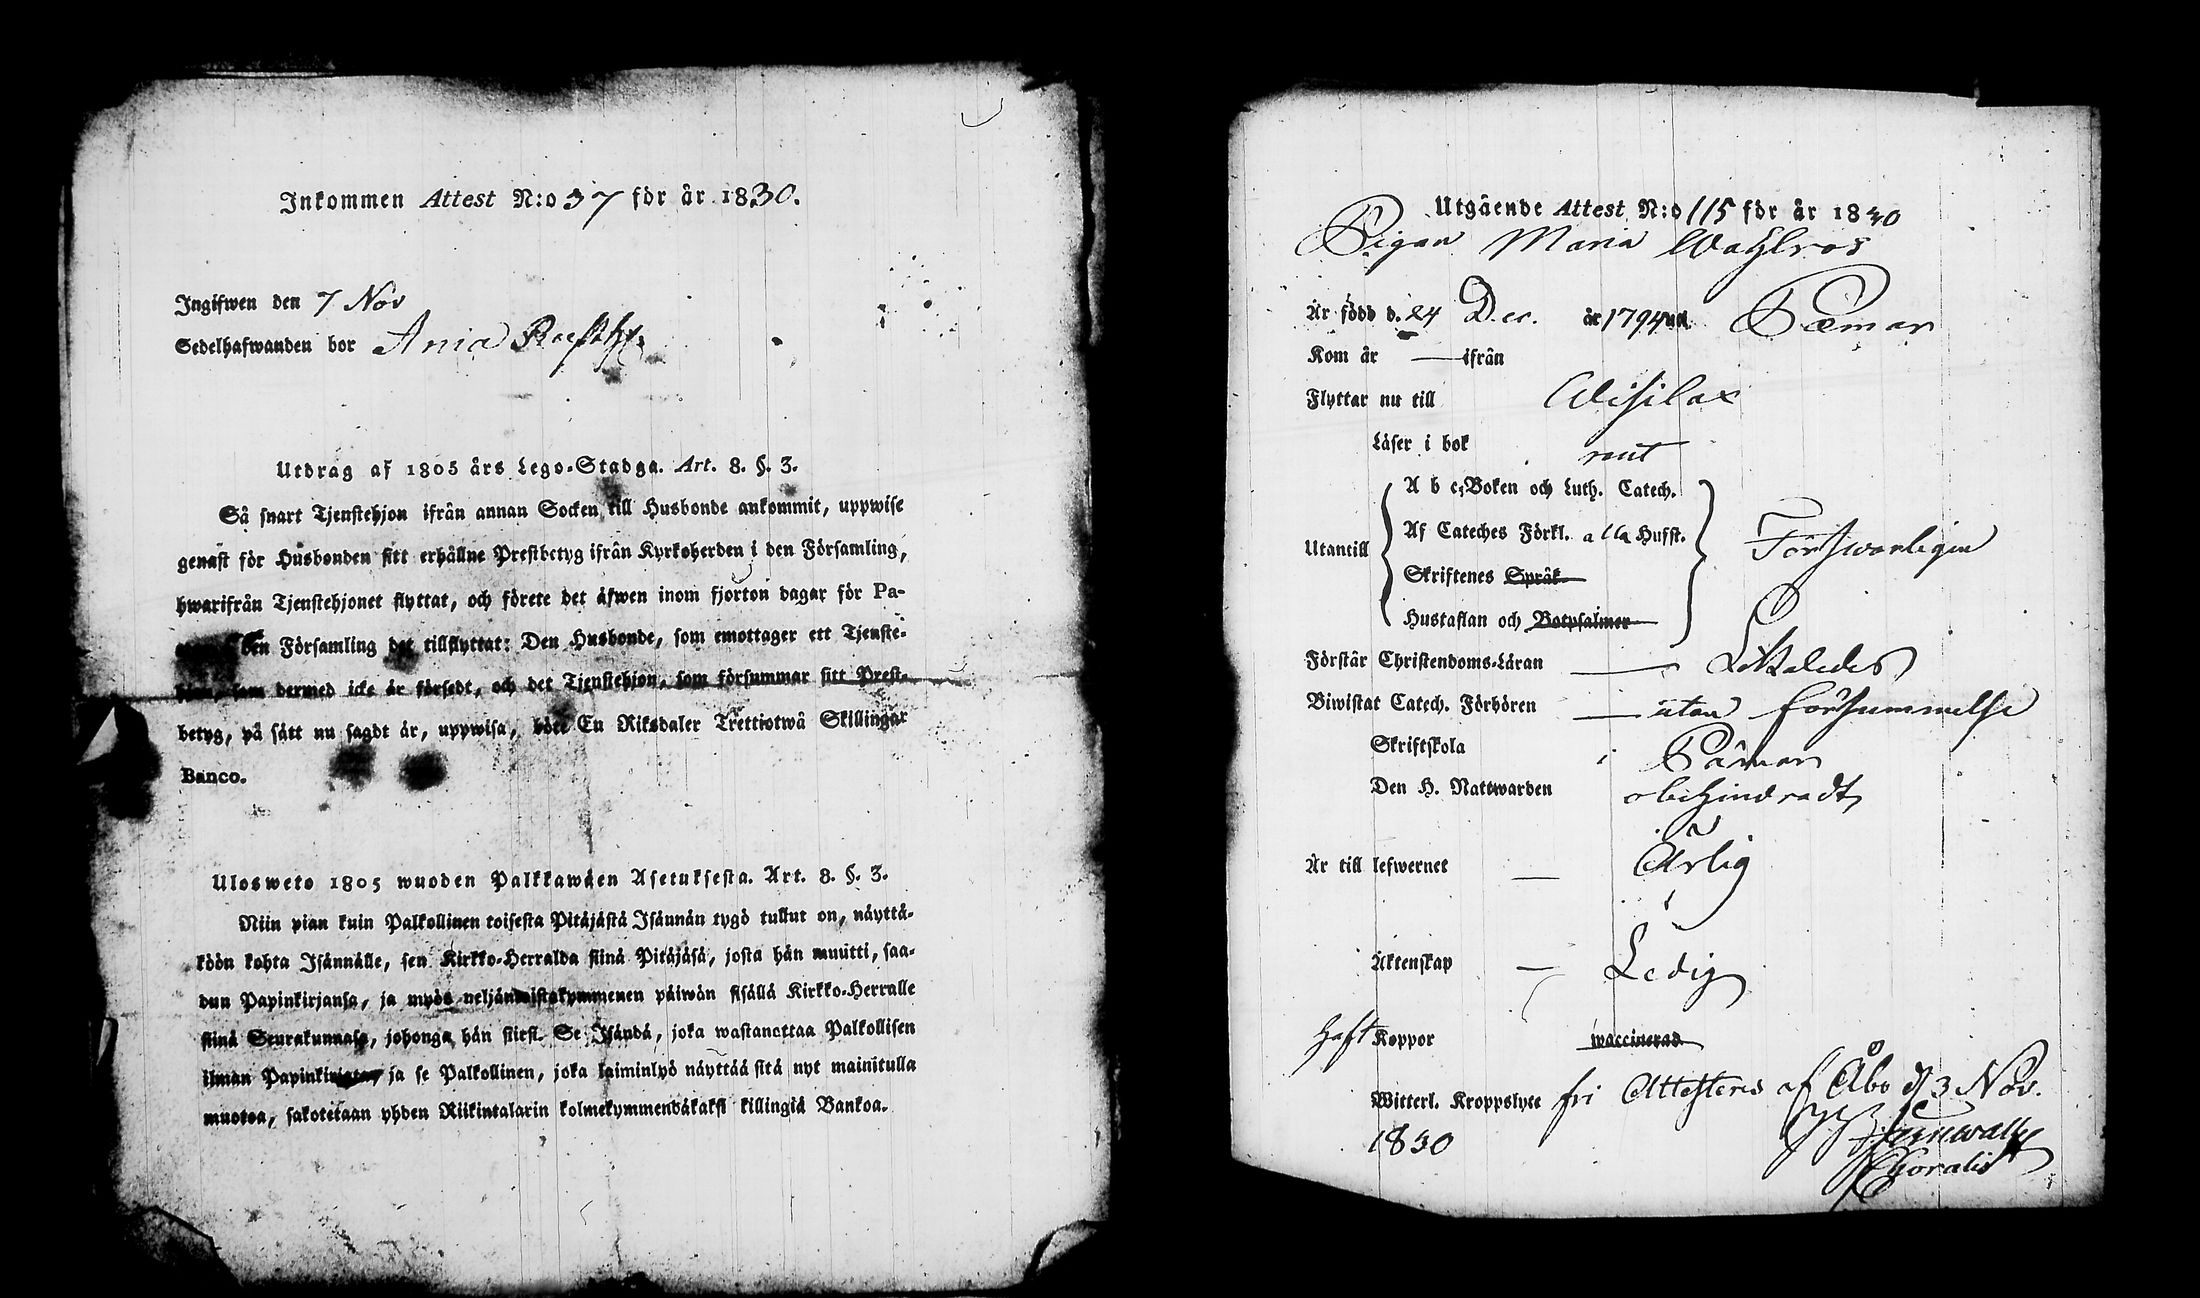 Inkommen Attest N:o 37 för år 1830.
Ingifwen den 7 Nov
Sedelhafwanden bor
Utdrag af 1805 års Lego-Stadga. Art. 8. §. 3.
Så snart Tjenstehjon ifrån annan Socken till Husbonde ankommit, uppwise
genast för Husbonden sitt erhållne Prestbetyg ifrån Kyrkoherden i den Församling,
hwarifrån Tjenstehjonet flyttat, och förete det äfwen inom fjorton dagar för Pa-
den Församling det tillflyttat: Den Husbonde, som emottager ett Tjenste-
som dermed icke är försedt, och det Tjenstehjon, som försummar sitt Prest-
betyg, på sätt nu sagdt är, uppwisa, böte En Riksdaler Trettiotwå Skillingar
Banco.
Ulosweto 1805 wuoden Palkkawäen Asetuksesta. Art. 8. §. 3.
Niin pian kuin Palkollinen toisesta Pitäjästä Isännän tygö tullut on, näyttä-
köön kohta Isännälle, sen Kirkko-Herralda siinä Pitäjäsä, josta hän muutti, saa-
dun Papinkirjansa, ja myös neljäntoistakymmenen päiwän sisällä Kirkko-Herralle
siinä Seurakunnasa, johonga hän siirsi. Se Isändä, joka wastanottaa Palkollisen
ilman Papinkirjata, ja se Palkollinen, joka laiminlyö näyttää sitä nyt mainitulla
muotoa, sakotetaan yhden Riikintalarin kolmekymmendäkaksi killingiä Bankoa.
Utgående Attest N:o 115 för år 1830
Pigan Maria Wahlros
Är född d. 24 Dec. år 1794 uti Pemar
Kom år — ifrån
Flyttar nu till Wisilax
Läser i bok rent
A b c-Boken och Luth. Catech.
Af Cateches Förkl. alla Hufst.
Utantill Förswarligen
Skriftenes Språk
Hustaflan och Botpsalmer
Förstår Christendoms-Läran — Likaledes
Biwistat Catech. Förhören — utan försummelse
Skriftskola i Pämar
Den H. Nattwarden obehindradt
Är till lefwernet — Ärlig
Äktenskap — Ledig
Haft Koppor waccinerad
Witterl. Kroppslyte fri Attesteras af Åbo d 3 Nov.
1830